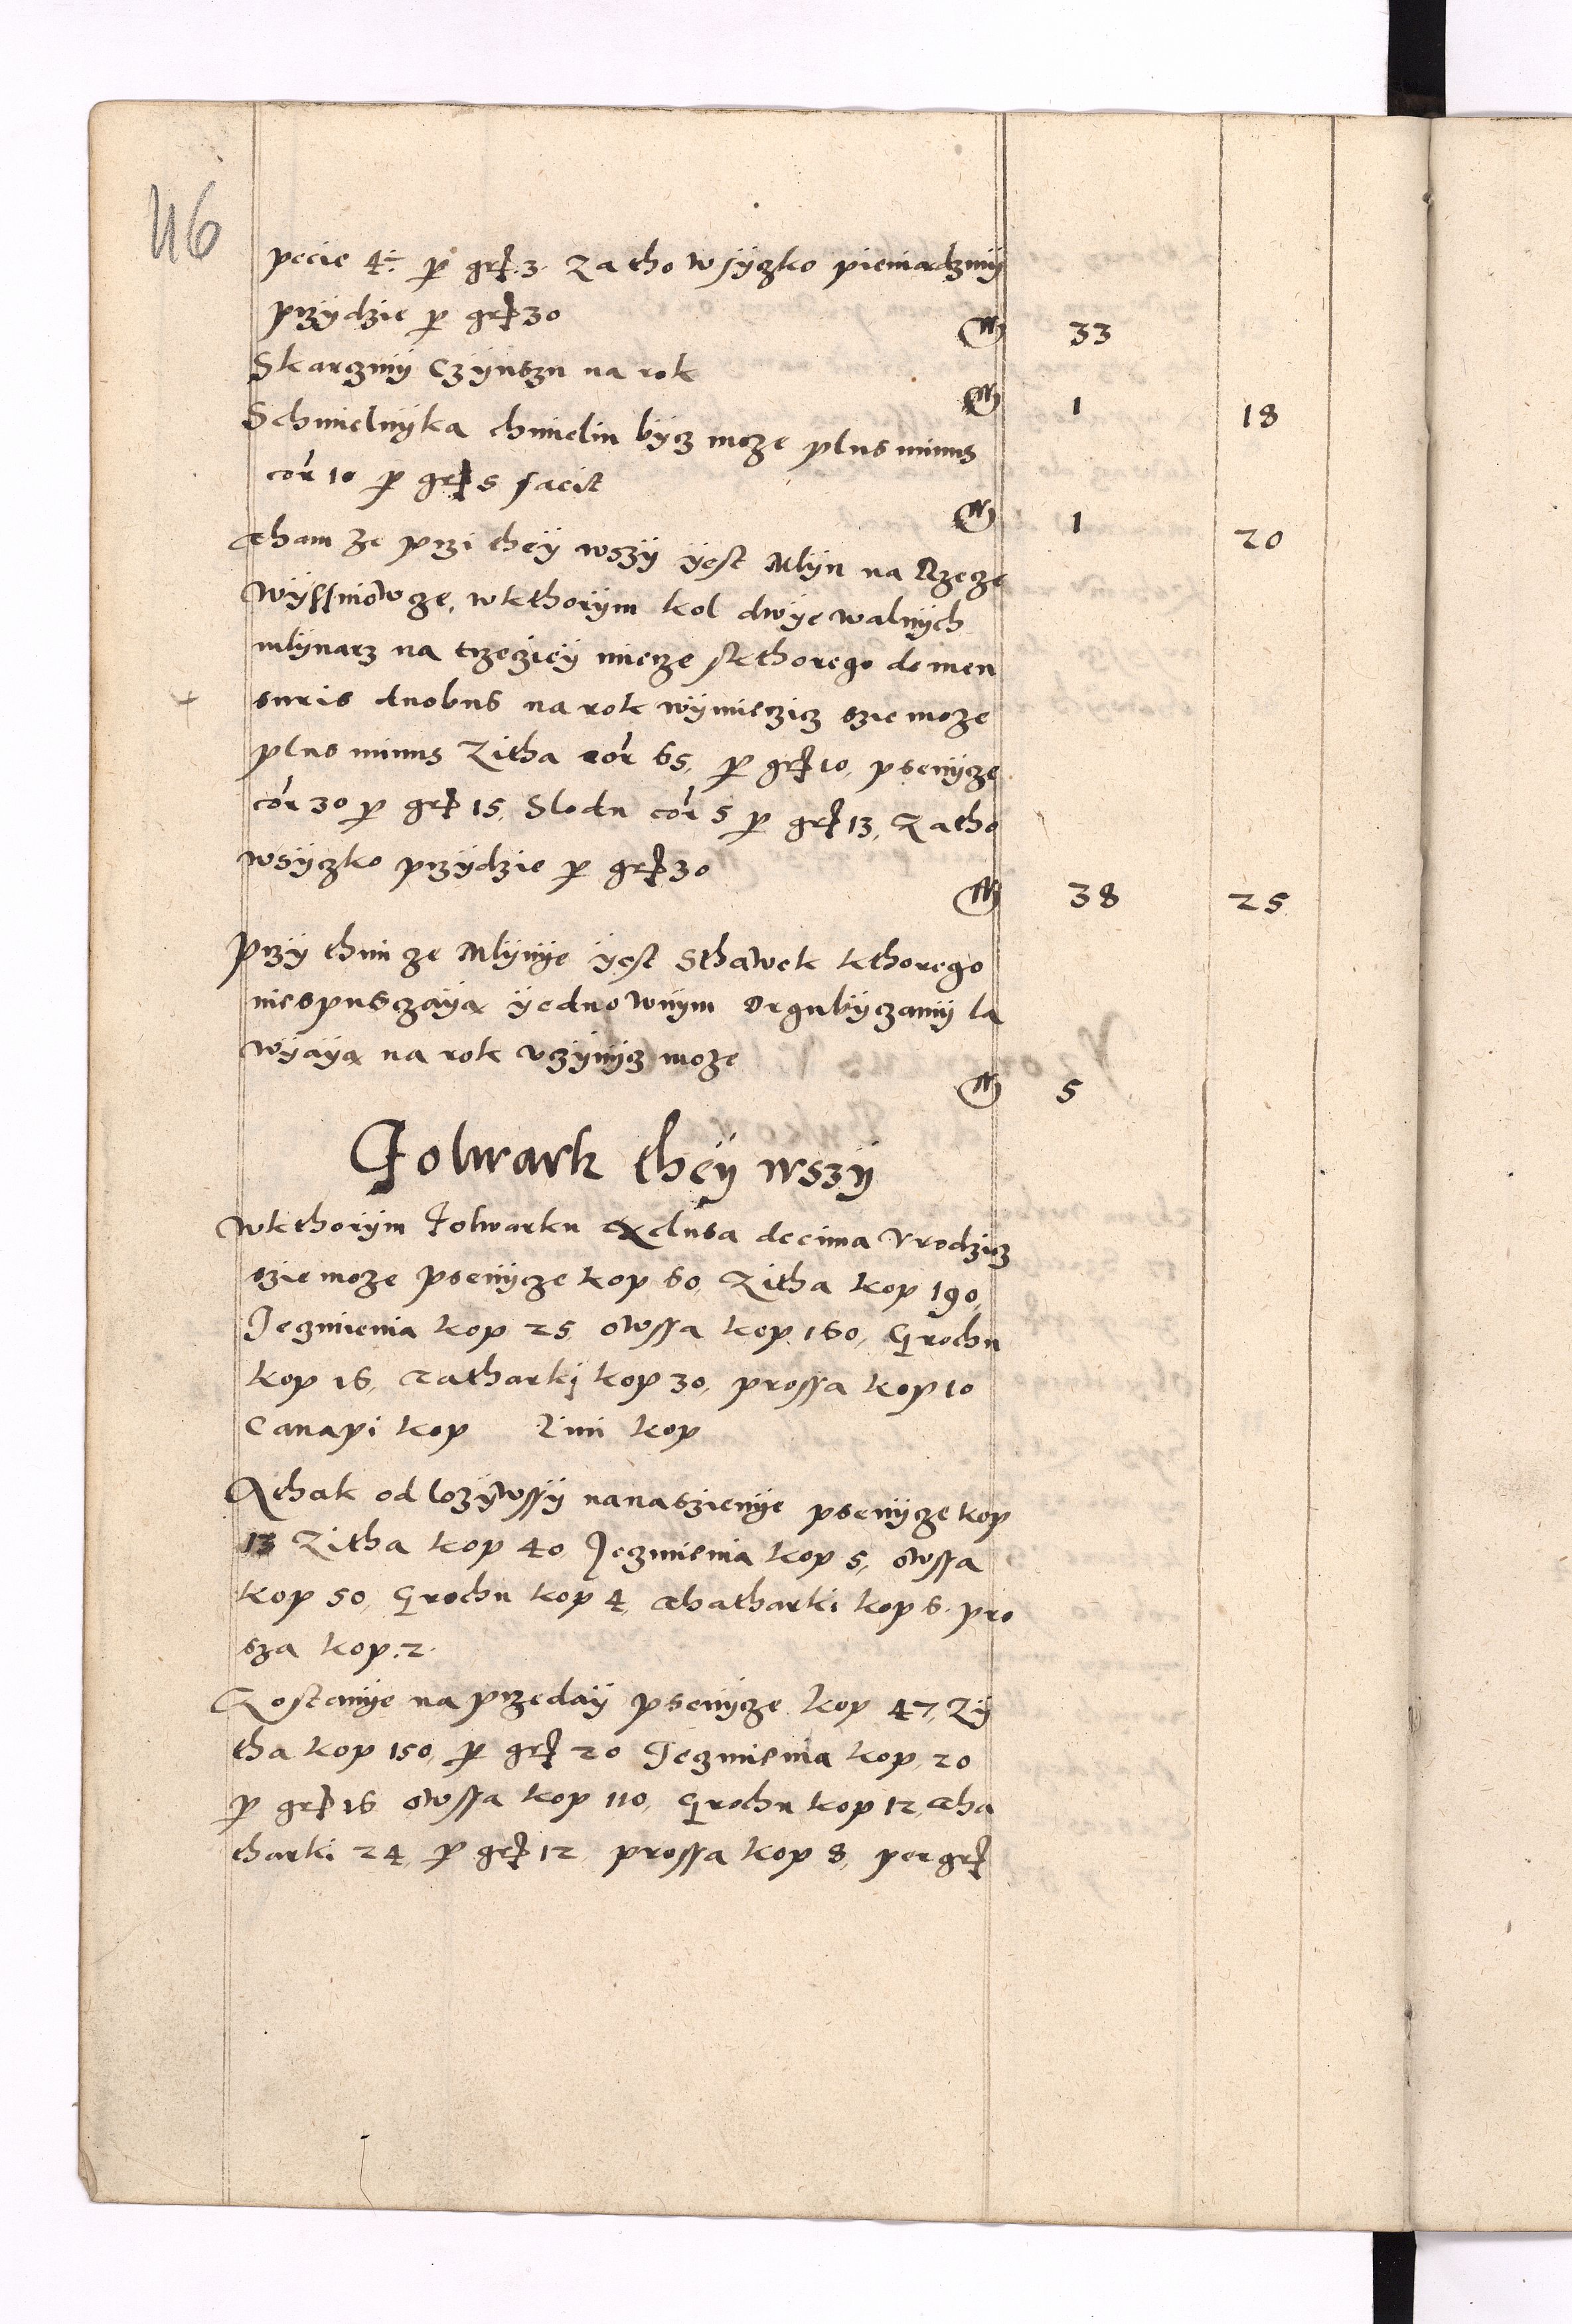 46
pecie 4 ÷ per grß 3. Za tho wsÿczko pieniadzmÿ
przÿdzie per grß 30 M 33
Skarczmÿ Czÿnszu na rok M 1 18
Schmielnÿka chmielin bÿcz moze plus minus
cor 10 per grß 5 facit M 1 20
Tham ze przi theÿ wszÿ ÿest Mlÿn na Rzecze
Wÿssniowcze, wkthorÿm kol dwÿe walnÿch
mlÿnarz na trzecziej mierze sktorego do men
suris duobus na rok wÿmierzicz szie moze
plus minus Zitha cor 65, per grß 10, psenÿcze
cor 30 per grß 15, Slodu cor 5 per grß 13, Zatho
wsÿczko przÿdzie per grß 30 M 38 25
Przÿ thim ze Mlÿnÿe ÿest Sthawek kthorego
niespusczaÿą ÿedno wnÿm
wÿaÿą na rok vczÿnÿcz moze M 5
Folwark theÿ wszÿ
Wkthorÿm Folwarku exclusa decima Vrodzicz
szie moze psenÿcze kop 60, Zitha kop 190,
Jeczmienia kop 25 owssa kop 160, Grochu
kop 16, Tatharki kop 30, prossa kop 10
Canapi kop Lini kop
A thak odlozÿwssÿ nanaszienÿe psenÿcze kop
13 Zitha kop 40 Jeczmienia kop 5, owssa
kop 50, Grochu kop 4, Thatharki kop 6. pro
sza kop. 2.
Zostanÿe na przedaÿ psenÿcze kop 47, Zÿ
tha kop 150, per grß 20 Jeczmienia kop 20
per grß 16 owssa kop 110, Grochu kop 12, Tha
tharki 24, per grß 12 prossa kop 8, per grß